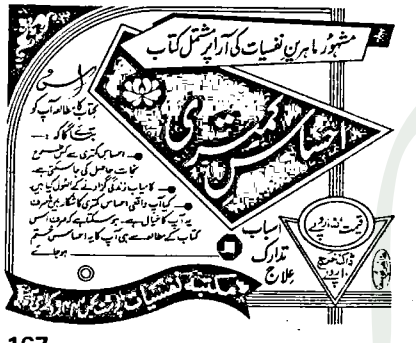 مشہور ماہرینِ نفسیات کی آرا پر مشتمل کتاب
احساسِ کمتری
اس
کتاب کا مطالعہ آپ کو
بتائے گا کہ :-
احساسِ کمتری سے کس طرح
نجات حاصل کی جا سکتی ہے
کامیاب زندگی گزارنے کے اصول کیا ہیں
کیا آپ واقعی احساس کمتری کا شکار ہیں یا صرف
یہ آپ کا خیال ہے۔ ہو سکتا ہے کہ صرف اس
کتاب کے مطالعے سے ہی آپ کا یہ احساس ختم
ہو جائے
اسباب
تدارک
علاج
قیمت
روپے
ڈاک خرچ
روپے
مکتبہ نفسیات
167